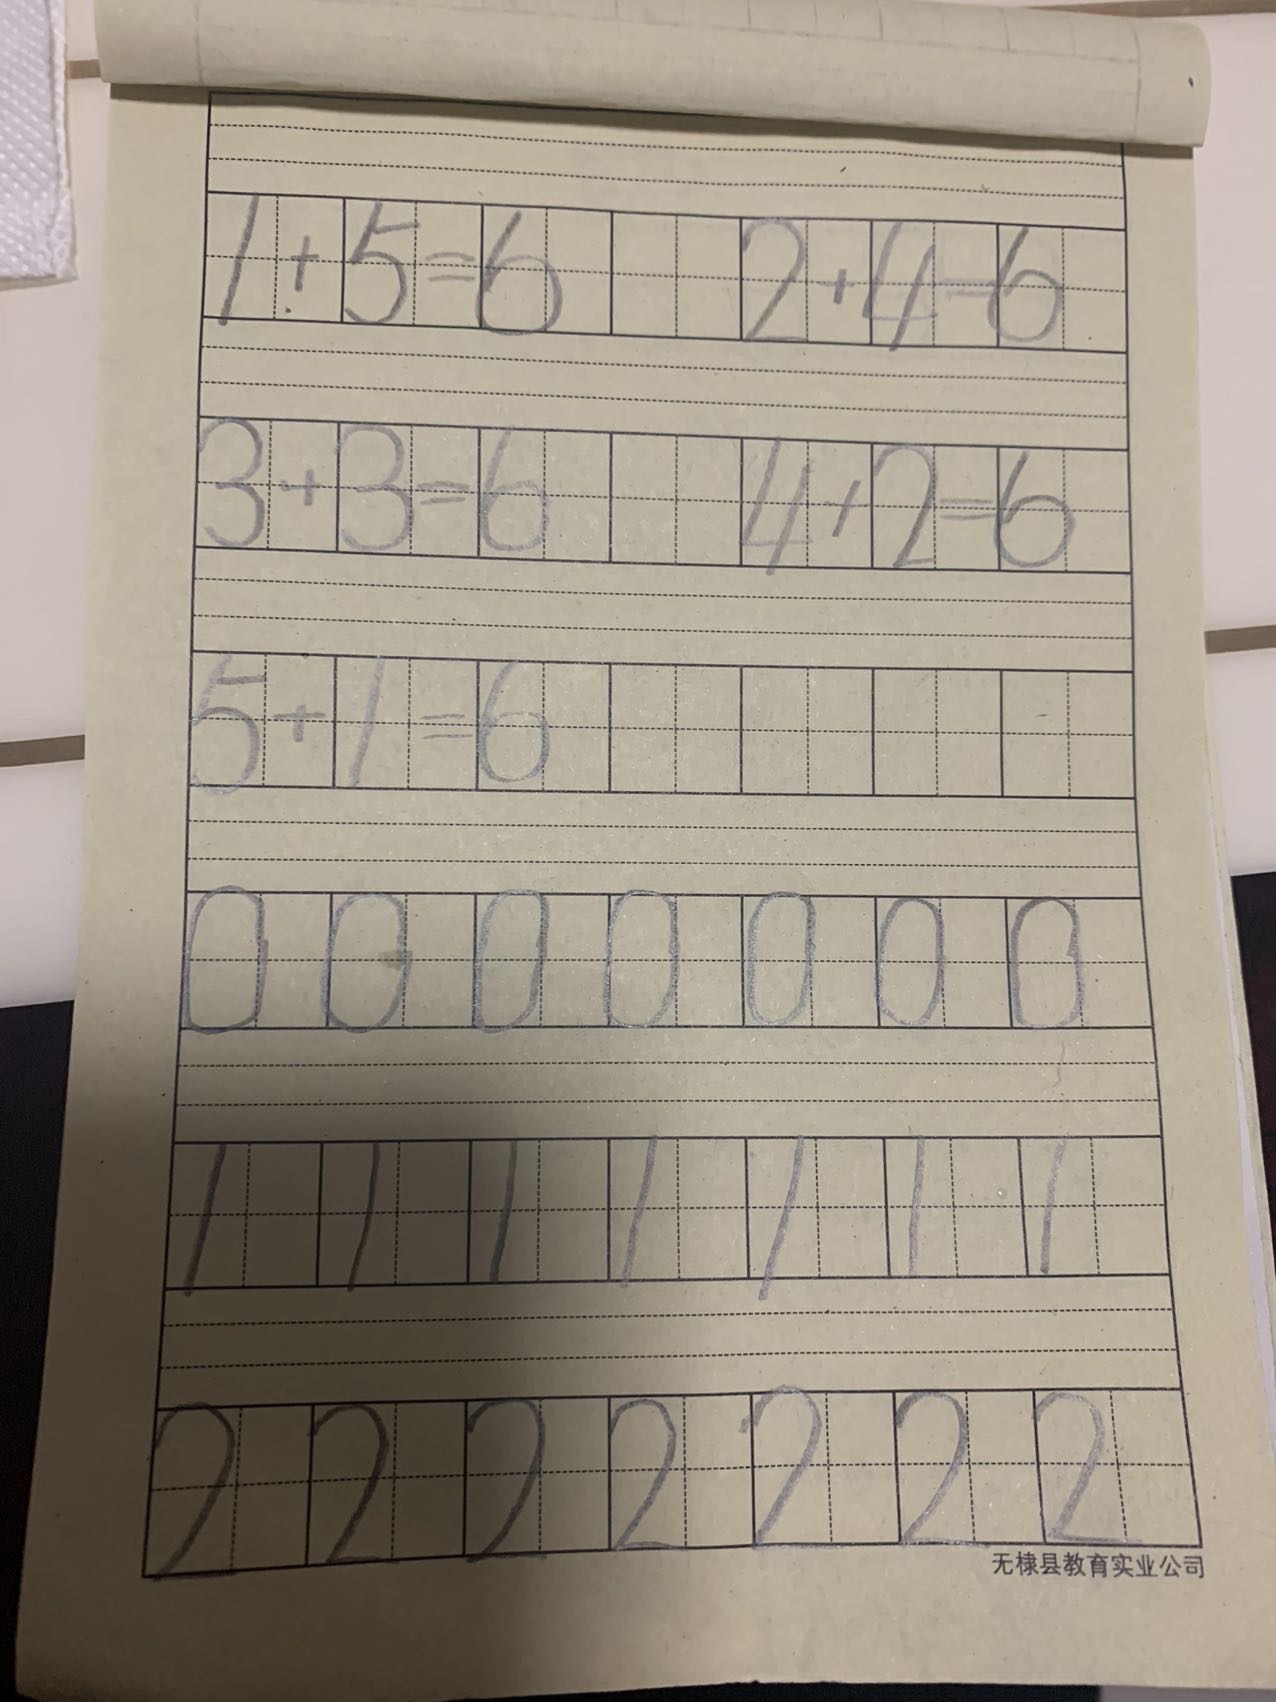 1+5=6 2+4=6
3+3=6 4+2=6
5+1=6
0 0 0 0 0 0 0
1 1 1 1 1 1 1
2 2 2 2 2 2 2
无棣县教育实业公司